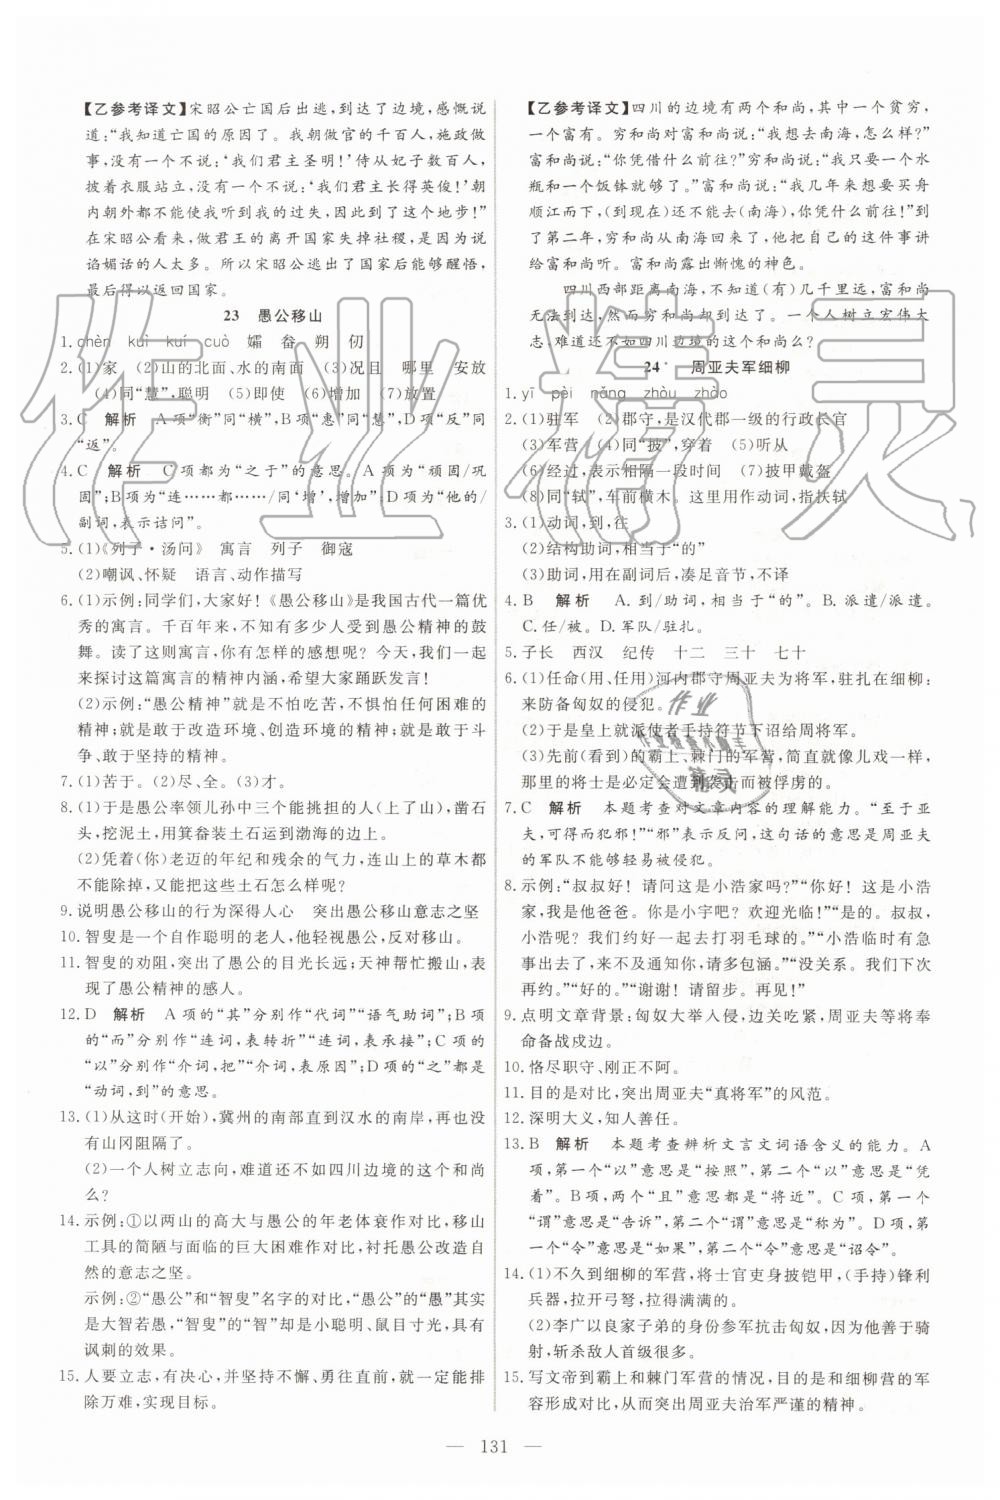 【乙参考译文】宋昭公亡国后出逃,到达了边境,感慨说
道:“我知道亡国的原因了。我朝做官的千百人,施政做
事,没有一个不说:‘我们君主圣明!’侍从妃子数百人,
披着衣服站立,没有一个不说:‘我们君主长得英俊!’朝
内朝外都不能使我听到我的过失,因此到了这个地步!”
在宋昭公看来,做君王的离开国家失掉社稷,是因为说
谄媚话的人太多。所以宋昭公逃离国家后能够醒悟,
最后得以返回国家。
23 愚公移山
1. chèn kuì kuí cuò 孀 畚 朔 仞
2. (1)家 (2)山的北面、水的南面 (3)况且 哪里 安放
(4)同“慧”,聪明 (5)即使 (6)增加 (7)放置
3. C 解析 A项“衡”同“横”,B项“惠”同“慧”,D项“反”同
“返”。
4. C 解析 C项都为“之于”的意思。A项为“顽固/巩
固”;B项为“连……都……/同‘增’,增加”;D项为“他的/
副词,表示诘问”。
5. (1)《列子·汤问》 寓言 列子 御寇
(2)嘲讽、怀疑 语言、动作描写
6. (1)示例:同学们,大家好!《愚公移山》是我国古代一篇优
秀的寓言。千百年来,不知有多少人受到愚公精神的鼓
舞。读了这篇寓言,你有怎样的感想呢?今天,我们一起
来探讨这篇寓言的精神内涵,希望大家踊跃发言!
(2)示例:“愚公精神”就是不怕吃苦,不惧怕任何困难的
精神;就是敢于改造环境、创造环境的精神;就是敢于斗
争、敢于坚持的精神。
7. (1)苦于。(2)尽、全。(3)才。
8. (1)于是愚公率领儿孙中三个能挑担的人(上了山),凿石
头,挖泥土,用箕畚装土石运到渤海的边上。
(2)凭着(你)老迈的年纪和残余的气力,连山上的草木都
不能除掉,又能把这些土石怎么样呢?
9. 说明愚公移山的行为深得人心 突出愚公移山意志之坚
10. 智叟是一个自作聪明的老人,他轻视愚公,反对移山。
11. 智叟的劝阻,突出了愚公的目光长远;天神帮忙搬山,表
现了愚公精神的感人。
12. D 解析 A项的“其”分别作“代词”“语气助词”;B项
的“而”分别作“连词,表转折”“连词,表承接”;C项的
“以”分别作“介词,把”“介词,表原因”;D项的“之”都是
“动词,到”的意思。
13. (1)从这时(开始),冀州的南部直到汉水的南岸,再也没
有山冈阻隔了。
(2)一个人树立志向,难道还不如四川边境的这个和尚
么?
14. 示例:①以两山的高大与愚公的年老体衰作对比,移山
工具的简陋与面临的巨大困难作对比,衬托愚公改造自
然的意志之坚。
示例:②“愚公”和“智叟”名字的对比,“愚公”的“愚”其实
是大智若愚,“智叟”的“智”却是小聪明、鼠目寸光,具有
讽刺的效果。
15. 人要立志,有决心,并坚持不懈、勇往直前,就一定能排
除万难,实现目标。
【乙参考译文】四川的边境有两个和尚,其中一个贫穷,
一个富有。穷和尚对富和尚说:“我想去南海,怎么样?”
富和尚说:“你凭借什么前往?”穷和尚说:“我一个水
瓶和一个饭钵就够了。”富和尚说:“我几年来想要买舟
顺江而下,(到现在)还不能去(南海),你凭什么前往!”到
了第二年,穷和尚从南海回来了,他把自己的这件事讲
给富和尚听。富和尚露出惭愧的神色。
四川西部距离南海,不知道(有)几千里远,富和尚
无法到达,但是穷和尚却到达了。一个人树立宏伟大
志,难道还不如四川边境的这个和尚么?
24* 周亚夫军细柳
1. yī pèi nǎng zhòu zhào
2. (1)驻军 (2)郡守,是汉代郡一级的行政长官
(3)军营 (4)同“披”,穿着 (5)听从
(6)经过,表示相隔一段时间 (7)披甲戴盔
(8)同“轼”,车前横木。这里用作动词,指扶轼
3. (1)动词,到,往
(2)结构助词,相当于“的”
(3)助词,用在副词后,凑足音节,不译
4. B 解析 A. 到/助词,相当于“的”。B. 派遣/派遣。
C. 任/被。D. 军队/驻扎。
5. 子长 西汉 纪传 十二 三十 七十
6. (1)任命(用、任用)河内郡守周亚夫为将军,驻扎在细柳,
来防备匈奴的侵犯。
(2)于是皇上就派使者手持符节下诏给周将军。
(3)先前(看到)的霸上、棘门的军营,简直就像儿戏一样,
那里的将士是必定会遭到袭击而被俘虏的。
7. C 解析 本题考查对文章内容的理解能力。“至于亚
夫,可得而犯邪!”“邪”表示反问,这句话的意思是周亚夫
的军队不能够轻易被侵犯。
8. 示例:“叔叔好!请问这是小浩家吗?”“你好!这是小浩
家,我是他爸爸。你是小宇吧?欢迎光临!”“是的。叔叔,
小浩呢?我们约好一起去打羽毛球的。”“小浩临时有急
事出去了,来不及通知你,请多包涵。”“没关系。我们下次
再约。”“好的。”“谢谢!请留步。再见!”
9. 点明文章背景:匈奴大举入侵,边关吃紧,周亚夫等将奉
命备战戍边。
10. 恪尽职守、刚正不阿。
11. 目的是对比,突出周亚夫“真将军”的风范。
12. 深明大义,知人善任。
13. B 解析 本题考查辨析文言文词语含义的能力。A
项,第一个“以”意思是“按照”,第二个“以”意思是“凭
着”。B项,两个“且”意思都是“将近”。C项,第一个
“谓”意思是“告诉”,第二个“谓”意思是“称为”。D项,第
一个“令”意思是“如果”,第二个“令”意思是“诏令”。
14. (1)不久到细柳的军营,将士官吏身披铠甲,(手持)锋利
兵器,拉开弓弩,拉得满满的。
(2)李广以良家子弟的身份参军抗击匈奴,因为善于骑
射,斩杀敌人首级很多。
15. 写文帝到霸上和棘门军营的情况,目的是和细柳营的军
容形成对比,从而突出周亚夫治军严谨的精神。
— 131 —
作业精灵
作业
精灵